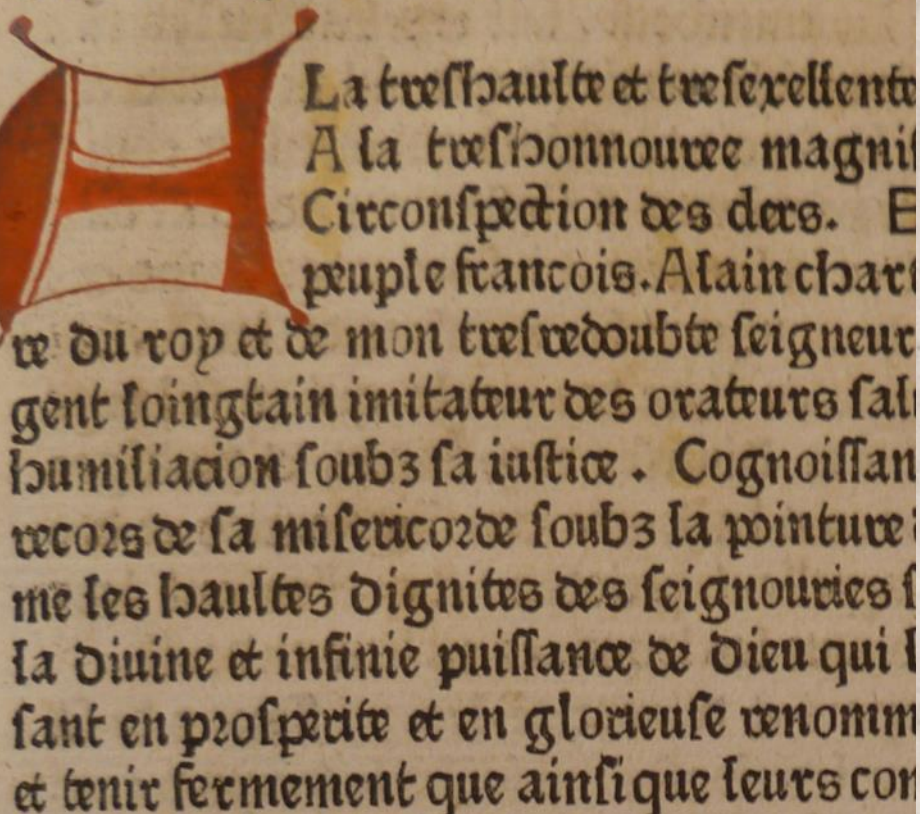 A La treshaulte et tresexellente
A la treshonnouree magni
Circonspection des clers. E
peuple francois. Alain char
re du roy et de mon tresredoubte seigneur
gent loingtain imitateur des orateurs sal
humiliacion soubz sa iustice. Cognoissan
recors de sa misericorde soubz la pointure
me les haultes dignites des seignouries s
la diuine et infinie puissance de dieu qui l
sant en prosperite et en glorieuse renomm
et tenir fermement que ainsi que leurs con